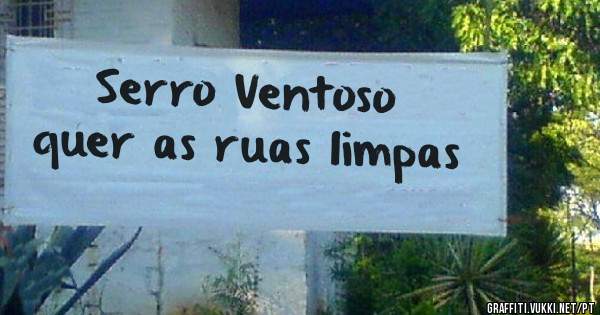 Serro Ventoso
quer as ruas limpas
GRAFFITI.VUKKI.NET/PT